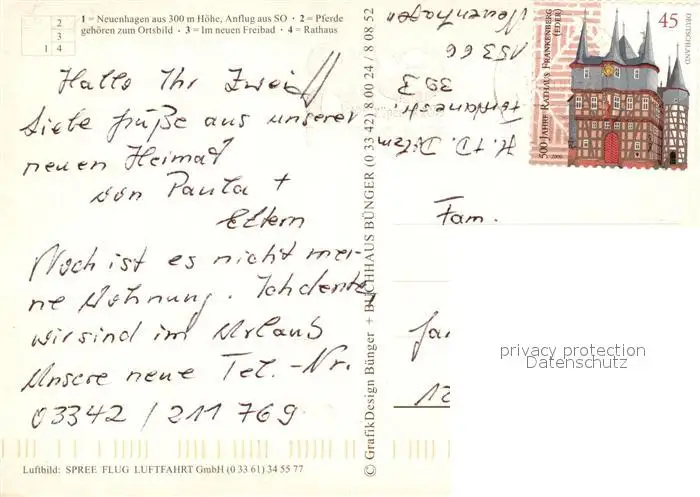 1 = Neuenhagen aus 300 m Höhe, Anflug aus SO · 2 = Pferde
gehören zum Ortsbild · 3 = Im neuen Freibad · 4 = Rathaus
2
3
1 4
Hallo Ihr Zwei!
Liebe Grüße aus unserer
neuen Heimat
von Paula +
Eltern
Noch ist es nicht mei-
ne Wohnung. Ich denke,
wir sind im Urlaub
Unsere neue Tel.-Nr.
03342 / 211 769
Luftbild: SPREE FLUG LUFTFAHRT GmbH (0 33 61) 34 55 77
© GrafikDesign Bünger + BUCHHAUS BÜNGER (0 33 42) 8 00 24 / 8 08 52
H. + D.
39 3
15366
Neuenhagen
500 JAHRE RATHAUS FRANKENBERG
(EDER)
45
DEUTSCHLAND
Fam.
12
privacy protection
Datenschutz